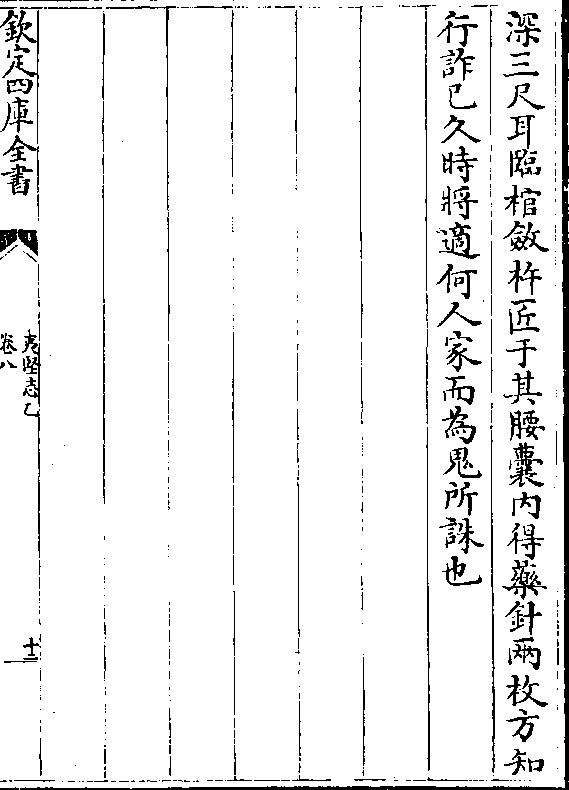 深三尺耳臨棺斂杵匠于其腰囊内得藥針兩枚方知
行詐已久時將適何人家而為鬼所誅也
欽定四庫全書
夷堅志乙
卷八
十三